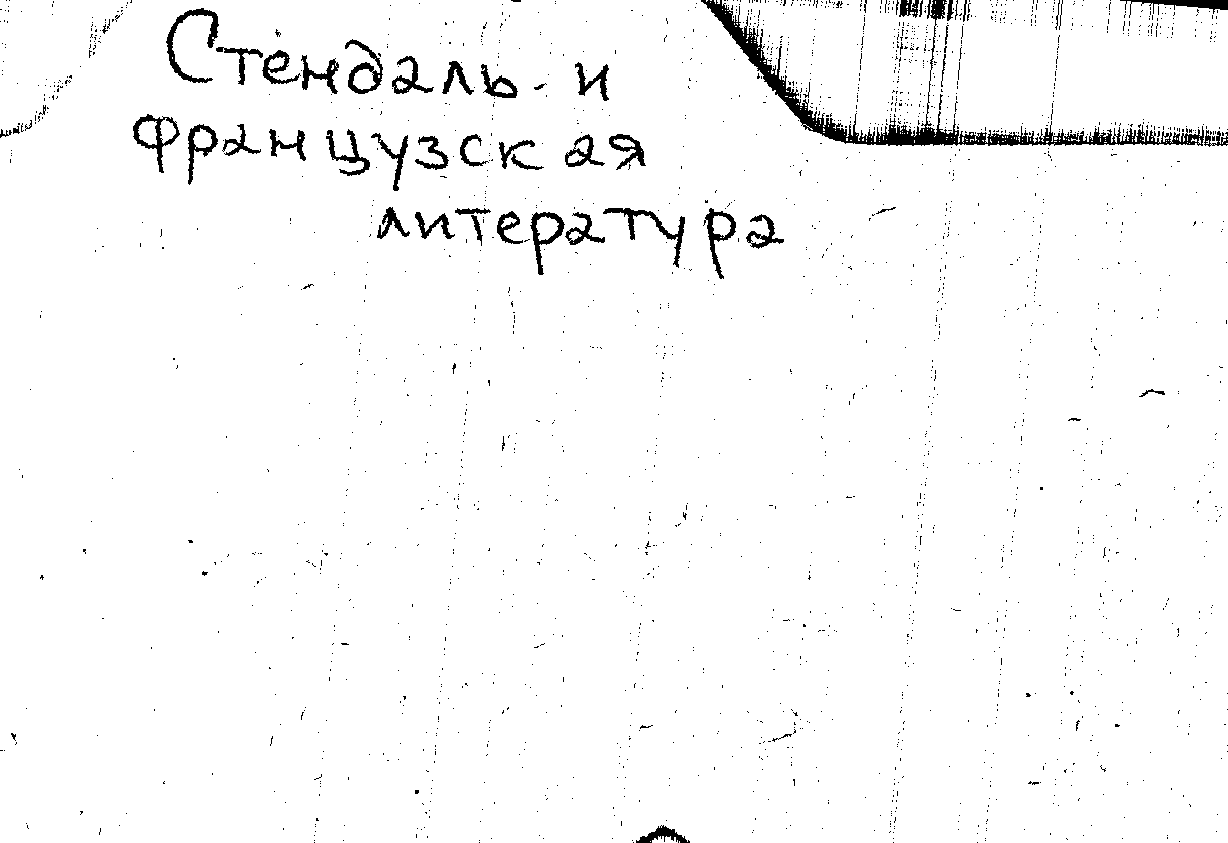 Стендаль и
французская
литература